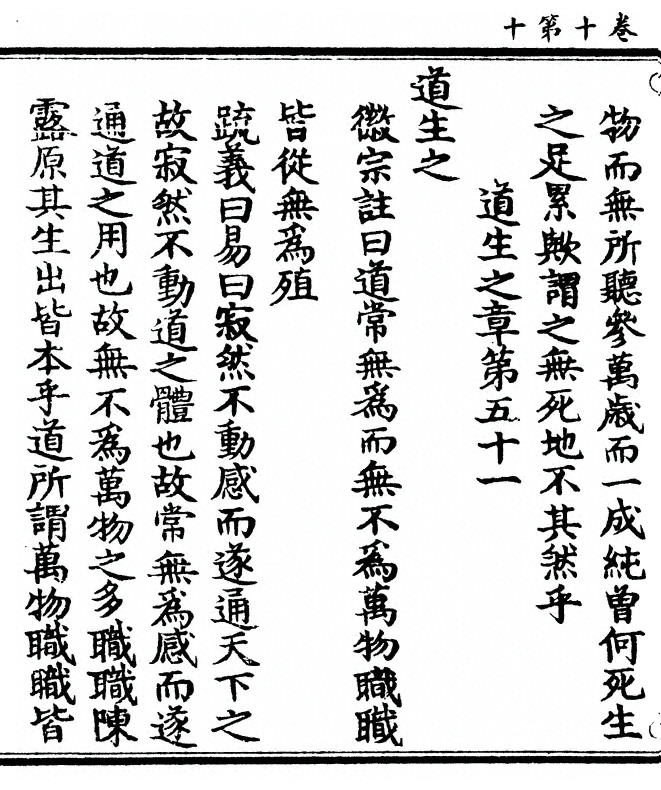 卷十第十
物而無所聽參萬歲而一成純曾何死生
之足累歟謂之無死地不其然乎
道生之章第五十一
道生之
徽宗註曰道常無爲而無不爲萬物職職
皆從無爲殖
疏義曰易曰寂然不動感而遂通天下之
故寂然不動道之體也故常無爲感而遂
通道之用也故無不爲萬物之多職職陳
露原其生出皆本乎道所謂萬物職職皆